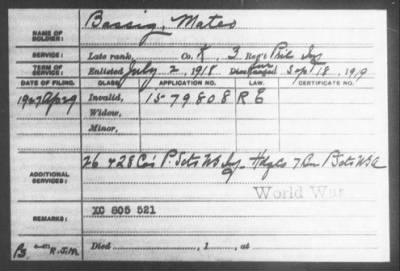 NAME OF SOLDIER: Bassig, Mateo
SERVICE: Late rank, Co. K, 3 Reg't Phil Inf
TERM OF SERVICE: Enlisted July 2, 1918 Discharged Sep 18, 191
DATE OF FILING. CLASS. APPLICATION NO. LAW. CERTIFICATE NO.
1927 Apr 29 Invalid, 1579808 R E
Widow,
Minor,
ADDITIONAL SERVICES: 26 & 28 Co's P. Scts 7 Bn
World War
REMARKS: XC 805 521
R.J.M.
Died , 1 , at